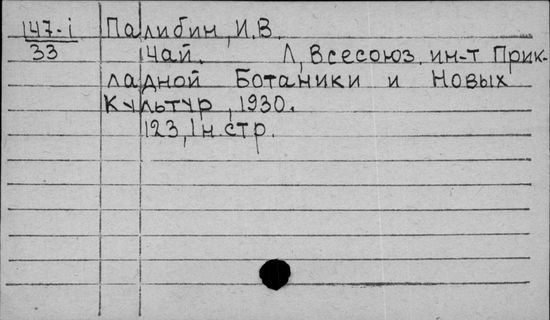 147-i
33
Палибин, И.В.
Чай. Л, Всесоюз. ин-т Прик-
ладной Ботаники и Новых
Культур, 1930.
123, 1 н. стр.